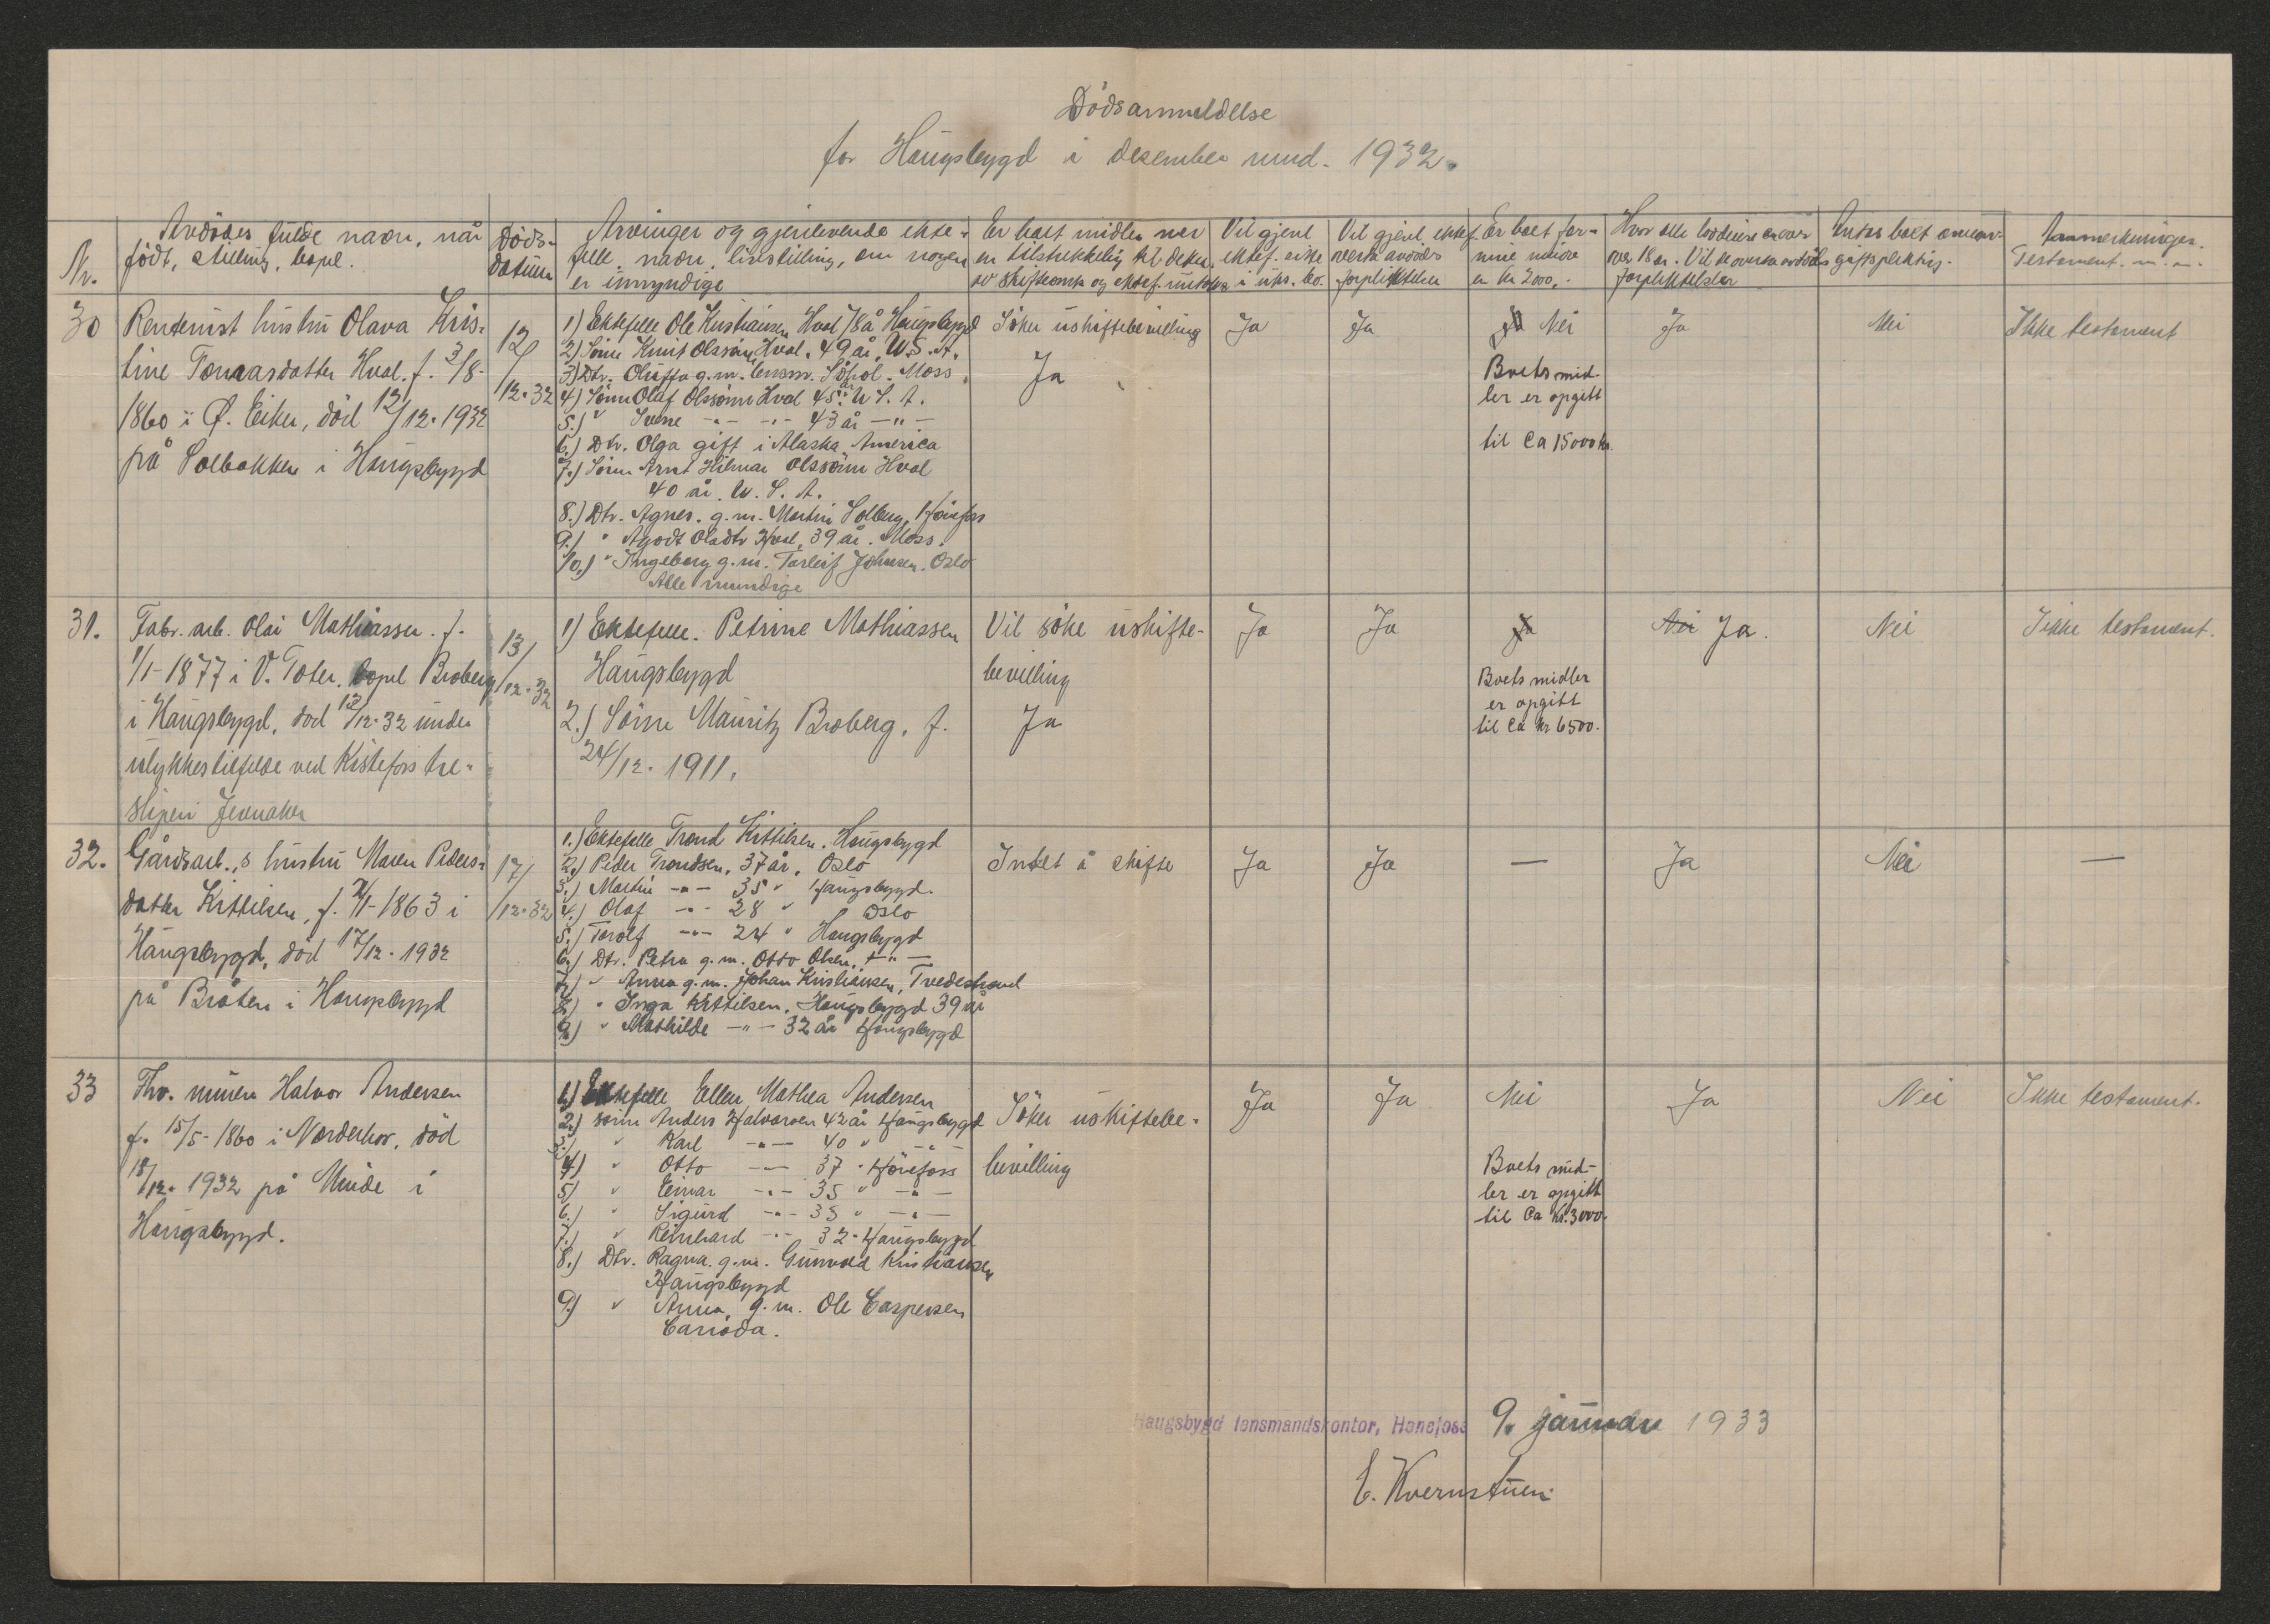 Dödsanmeldelse
for Haugsbygd i desember mnd. 1932.
Nr.
Avdödes fulde navn, når
födt, stilling, bopel.
Döds-
datum
Arvinger og gjenlevende ekte-
felle, navn, livsstilling, om nogen
er umyndige
Er boet midler mer
en tilstrekkelig til dekn.
av skifteomk og ektef.
Vil gjenl
ektef. sitte
i usk. bo.
Vil gjenl. ektef
overta avdödes
forpliktelser
Er boet for-
mue mindre
en kr 2000,-
Hvor alle loddeiere er over
over 18 år. Vil de overta avdödes
forpliktelser
Antas boet arveav-
giftspliktig.
Anmerkninger.
Testament. m. m.
30
Rentenist hustru Olava Kris-
tine Tomasdatter Hval. f. 3/8-
1860 i Ö. Eiker, död 12/12-1932
på Solbakken i Haugsbygd
12/
12-32
1) Ektefelle Ole Kristiansen Hval 78 å Haugsbygd
2) Sönn Knut Olssönn Hval. 49 år, U.S.A.
3) Dtr. Oluffa g.m. Moss
4) Sönn Olaf Olssönn Hval 45 år U.S.A.
5.) " Sverre -"- -"- 43 år -"-
6.) Dtr. Olga gift i Alaska America
7.) Sönn Arnt Hilmar Olssönn Hval
40 år. U. S. A.
8.) Dtr. Agnes. g.m. Martin Solberg, Hönefoss
9.) " Agodt Olsdtr Hval, 39 år. Moss.
10.) " Ingeborg g.m. Torleif Johnsen. Oslo
Alle myndige
Söker uskiftebevilling
Ja
Ja
Ja
Ja Nei
Boets mid-
ler er opgitt
til Ca 15000 kr.
Ja
Nei
Ikke testament
31.
Fabr. arb. Olai Mathiassen. f.
1/1-1877 i V. Toten. bopel Broberg
i Haugsbygd, död 13/12-32 under
ulykkestilfelde ved Kistefoss tre-
sliperi Jevnaker
13/
12-32
1) Ektefelle. Petrine Mathiassen
Haugsbygd
2.) Sönn Mauritz Broberg. f.
24/12-1911.
Vil söke uskifte-
bevilling
Ja
Ja
Ja
Ja
Boets midler
er opgitt
til Ca kr 6500.-
Nei Ja.
Nei
Ikke testament.
32.
Gårdsarb.,s hustru Maren Peders-
datter Kittilsen, f. 2/1-1863 i
Haugsbygd, död 17/12-1932
på Bråten i Haugsbygd
17/
12-32
1.) Ektefelle Trond Kittilsen. Haugsbygd
2.) Peder Trondsen, 37 år, Oslo
3.) Martin -"- 35 " Haugsbygd.
4.) Olaf -"- 28 " Oslo
5.) Torolf -"- 24 " Haugsbygd
6.) Dtr. Petra g.m. Otto Olsen, -"-
7.) " Anna g.m. Johan Kristiansen, Tvedestrand
8.) " Inga Kittilsen. Haugsbygd 39 år
9.) " Mathilde -"- 32 år Haugsbygd
Intet å skifte
Ja
Ja
—
Ja
Nei
—
33
Fhv. murer Halvor Andersen
f. 15/5-1860 i Norderhov, död
18/12-1932 på Minde i
Haugsbygd.
1.) Ektefelle Ellen Mathea Andersen
2.) sönn Anders Halvorsen 42 år Haugsbygd
3.) " Karl -"- 40 " -"-
4) " Otto -"- 37 " Hönefoss
5) " Einar -"- 35 " -"-
6.) " Sigurd -"- 35 " -"-
7.) " Reinhard -"- 32 " Haugsbygd
8.) Dtr. Ragna. g.m. Gunvald Kristiansen
Haugsbygd
9.) " Anna, g.m. Ole Caspersen
Canada.
Söker uskiftebe-
bevilling
Ja
Ja
Nei
Boets mid-
ler er opgitt
til Ca kr. 3000.-
Ja
Nei
Ikke testament.
Haugsbygd lensmandskontor, Hønefoss 9. januar 1933
E. Kvernstuen